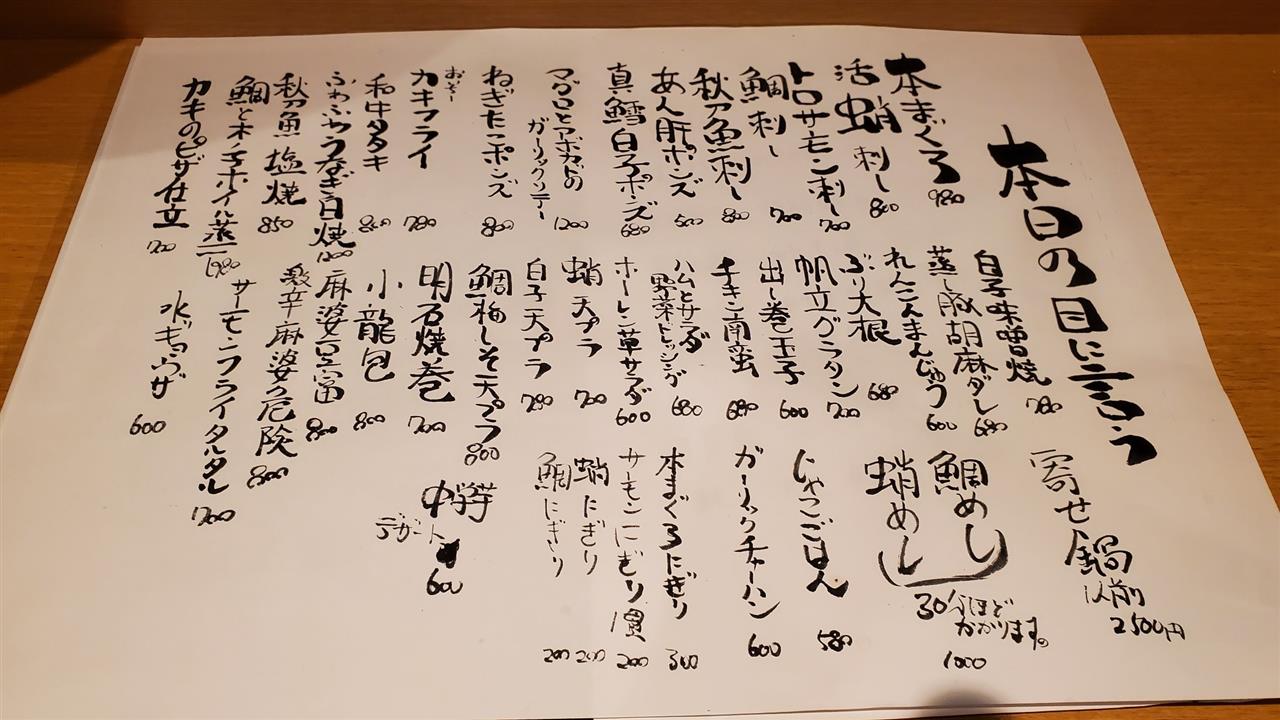 本日の目に言う
本まぐろ 980
活蛸刺し 800
トロサーモン刺し 700
鯛刺し 700
秋刀魚刺し 800
あん肝ポンズ 500
真鱈白子ポンズ 680
マグロとアボカドの
ガーリックソテー 1200
ねぎたこポンズ 800
カキフライ 780
和牛タタキ 800
ふわふわうなぎ白焼 1200
秋刀魚塩焼 850
鯛と木ノ子ホイル蒸し 1980
カキのピザ仕立 700
白子味噌焼 780
蒸し豚胡麻ダレ 680
れんこんまんじゅう 600
ぶり大根 680
帆立グラタン 700
出し巻玉子 600
チキン南蛮 680
ハムとサラダ
野菜ドレッシング 680
ホーレン草サラダ 600
蛸天プラ 700
白子天プラ 780
鯛梅しそ天プラ 800
明石焼巻 700
小龍包 800
麻婆豆富 800
激辛麻婆危険 800
サーモンフライタルタル 700
水ギョウザ 600
寄せ鍋
1人前
2500円
鯛めし
蛸めし
30分ほど
かかります。
1000
じゃこごはん 580
ガーリックチャーハン 600
本まぐろにぎり 300
サーモンにぎり 1貫 200
蛸にぎり 200
鯛にぎり 200
デザート
600